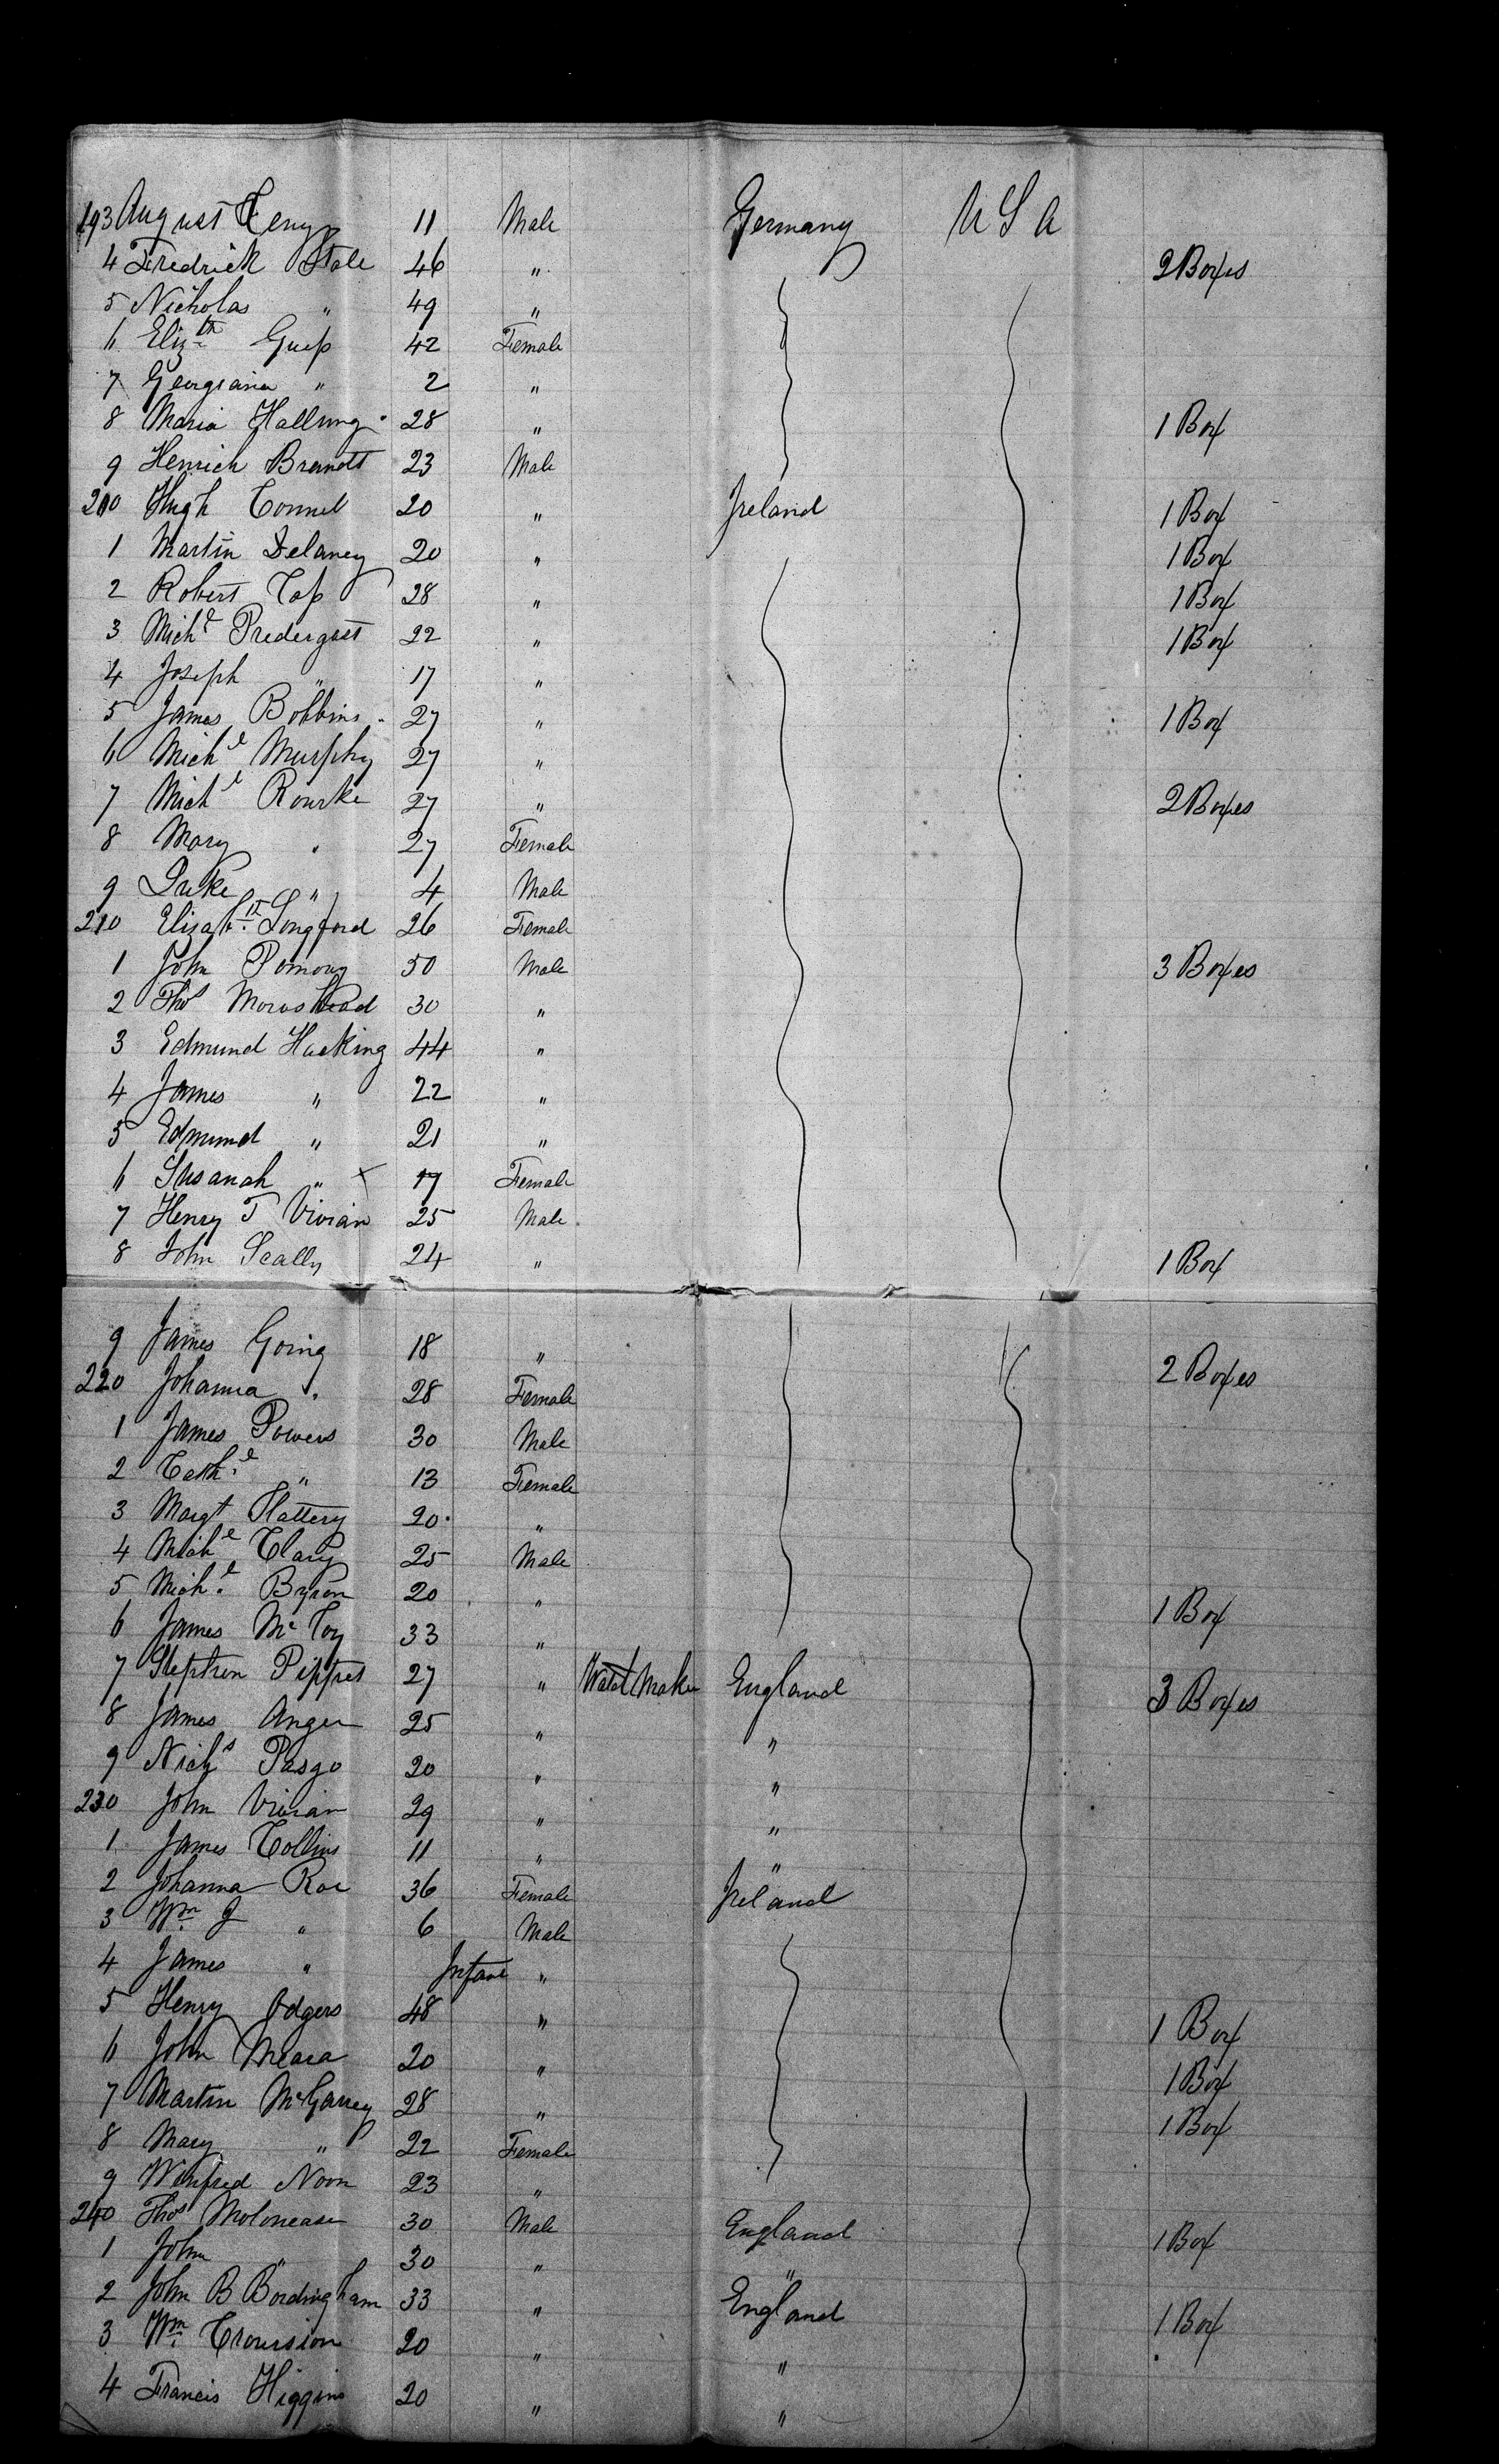 193 August Leng 11 Male Germany U S A
4 Fredrick Stole 46 " 2 Boxes
5 Nicholas " 49 "
6 Elizth Guess 42 Female
7 Georgiana " 2 "
8 Maria Hallung 28 " 1 Box
9 Henrich Brandt 23 Male
200 Hugh Connel 20 " Ireland 1 Box
1 Martin Delaney 20 " 1 Box
2 Robert Cass 28 " 1 Box
3 Michl Predergast 22 " 1 Box
4 Joseph " 17 "
5 James Bobbins 27 " 1 Box
6 Michl Murphy 27 "
7 Michl Rourke 27 " 2 Boxes
8 Mary " 27 Female
9 Luke " 4 Male
210 Elizabth Longford 26 Female
1 John Pomony 50 Male 3 Boxes
2 Thos Morushead 30 "
3 Edmund Hacking 44 "
4 James " 22 "
5 Edmund " 21 "
6 Susanah " x 17 Female
7 Henry T Vivian 25 Male
8 John Scally 24 " 1 Box
9 James Going 18 " 2 Boxes
220 Johanna " 28 Female
1 James Powers 30 Male
2 Cathe " 13 Female
3 Margt Slattery 20 "
4 Michl Clary 25 Male
5 Michl Byron 20 " 1 Box
6 James McCoy 33 "
7 Stephen Pippet 27 " Watch Maker England 3 Boxes
8 James Anger 25 " "
9 Nichs Pasgo 20 " "
230 John Vivian 29 " "
1 James Collins 11 " "
2 Johanna Roe 36 Female Ireland
3 Wm J " 6 Male
4 James " Infant "
5 Henry Odgers 48 " 1 Box
6 John Meara 20 " 1 Box
7 Martin McGarrey 28 " 1 Box
8 Mary " 22 Female
9 Winfred Noon 23 "
240 Thos Molonease 30 Male England 1 Box
1 John " 30 " "
2 John B Bordingham 33 " England 1 Box
3 Wm Croursion 20 " "
4 Francis Higgins 20 " "